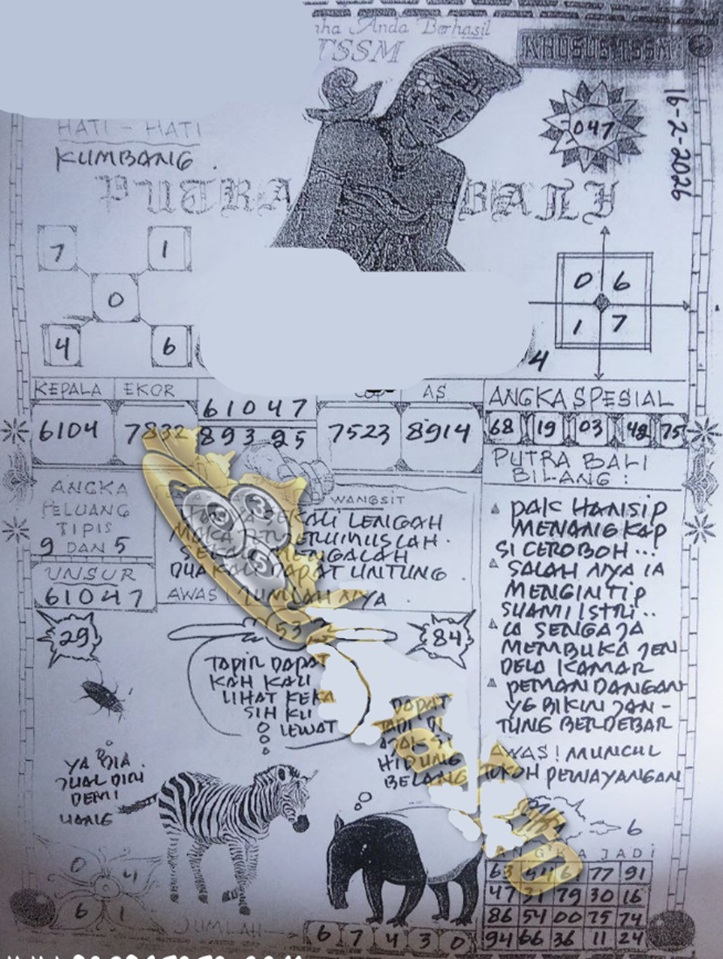 Anda Berhasil
TSSM
KHUSUS TSSM
16-2-2026
047
HATI - HATI
KUMBANG
PUTRA BALI
7 1
0
4 6
0 6
1 7
4
KEPALA EKOR
AS
ANGKA SPESIAL
6104
7832
61047
893 25
7523
8914
68 19 03 48 75
PUTRA BALI
BILANG :
PAK HANSIP
MENANGKAP
SI CEROBOH ...
SALAH NYA IA
MENGINTIP
SUAMI ISTRI ..
IA SENGAJA
MEMBUKA JEN
DELA KAMAR
PEMANDANGAN
YG BIKIN JAN -
TUNG BERDEBAR
AWAS ! MUNCUL
TOKOH PEWAYANGAN
ANGKA
PELUANG
TIPIS
9 DAN 5
UNSUR
61047
WANGSIT
KALI LENGAH
MENGALAH
DUA KALI DAPAT UNTUNG
AWAS JUMLAH NYA
29
84
TAPIR DAPAT
KAH KAU
LIHAT KEKA
SIH KU
LEWAT
DAPAT
JADI DI
HIDUNG
BELANG
YA DIA
JUAL DIRI
DEMI
UANG
6
ANGKA JADI
63 77 91
47 31 79 30 16
86 54 00 75 74
94 66 36 11 24
0 4
6 1
JUMLAH
6 7 4 3 0